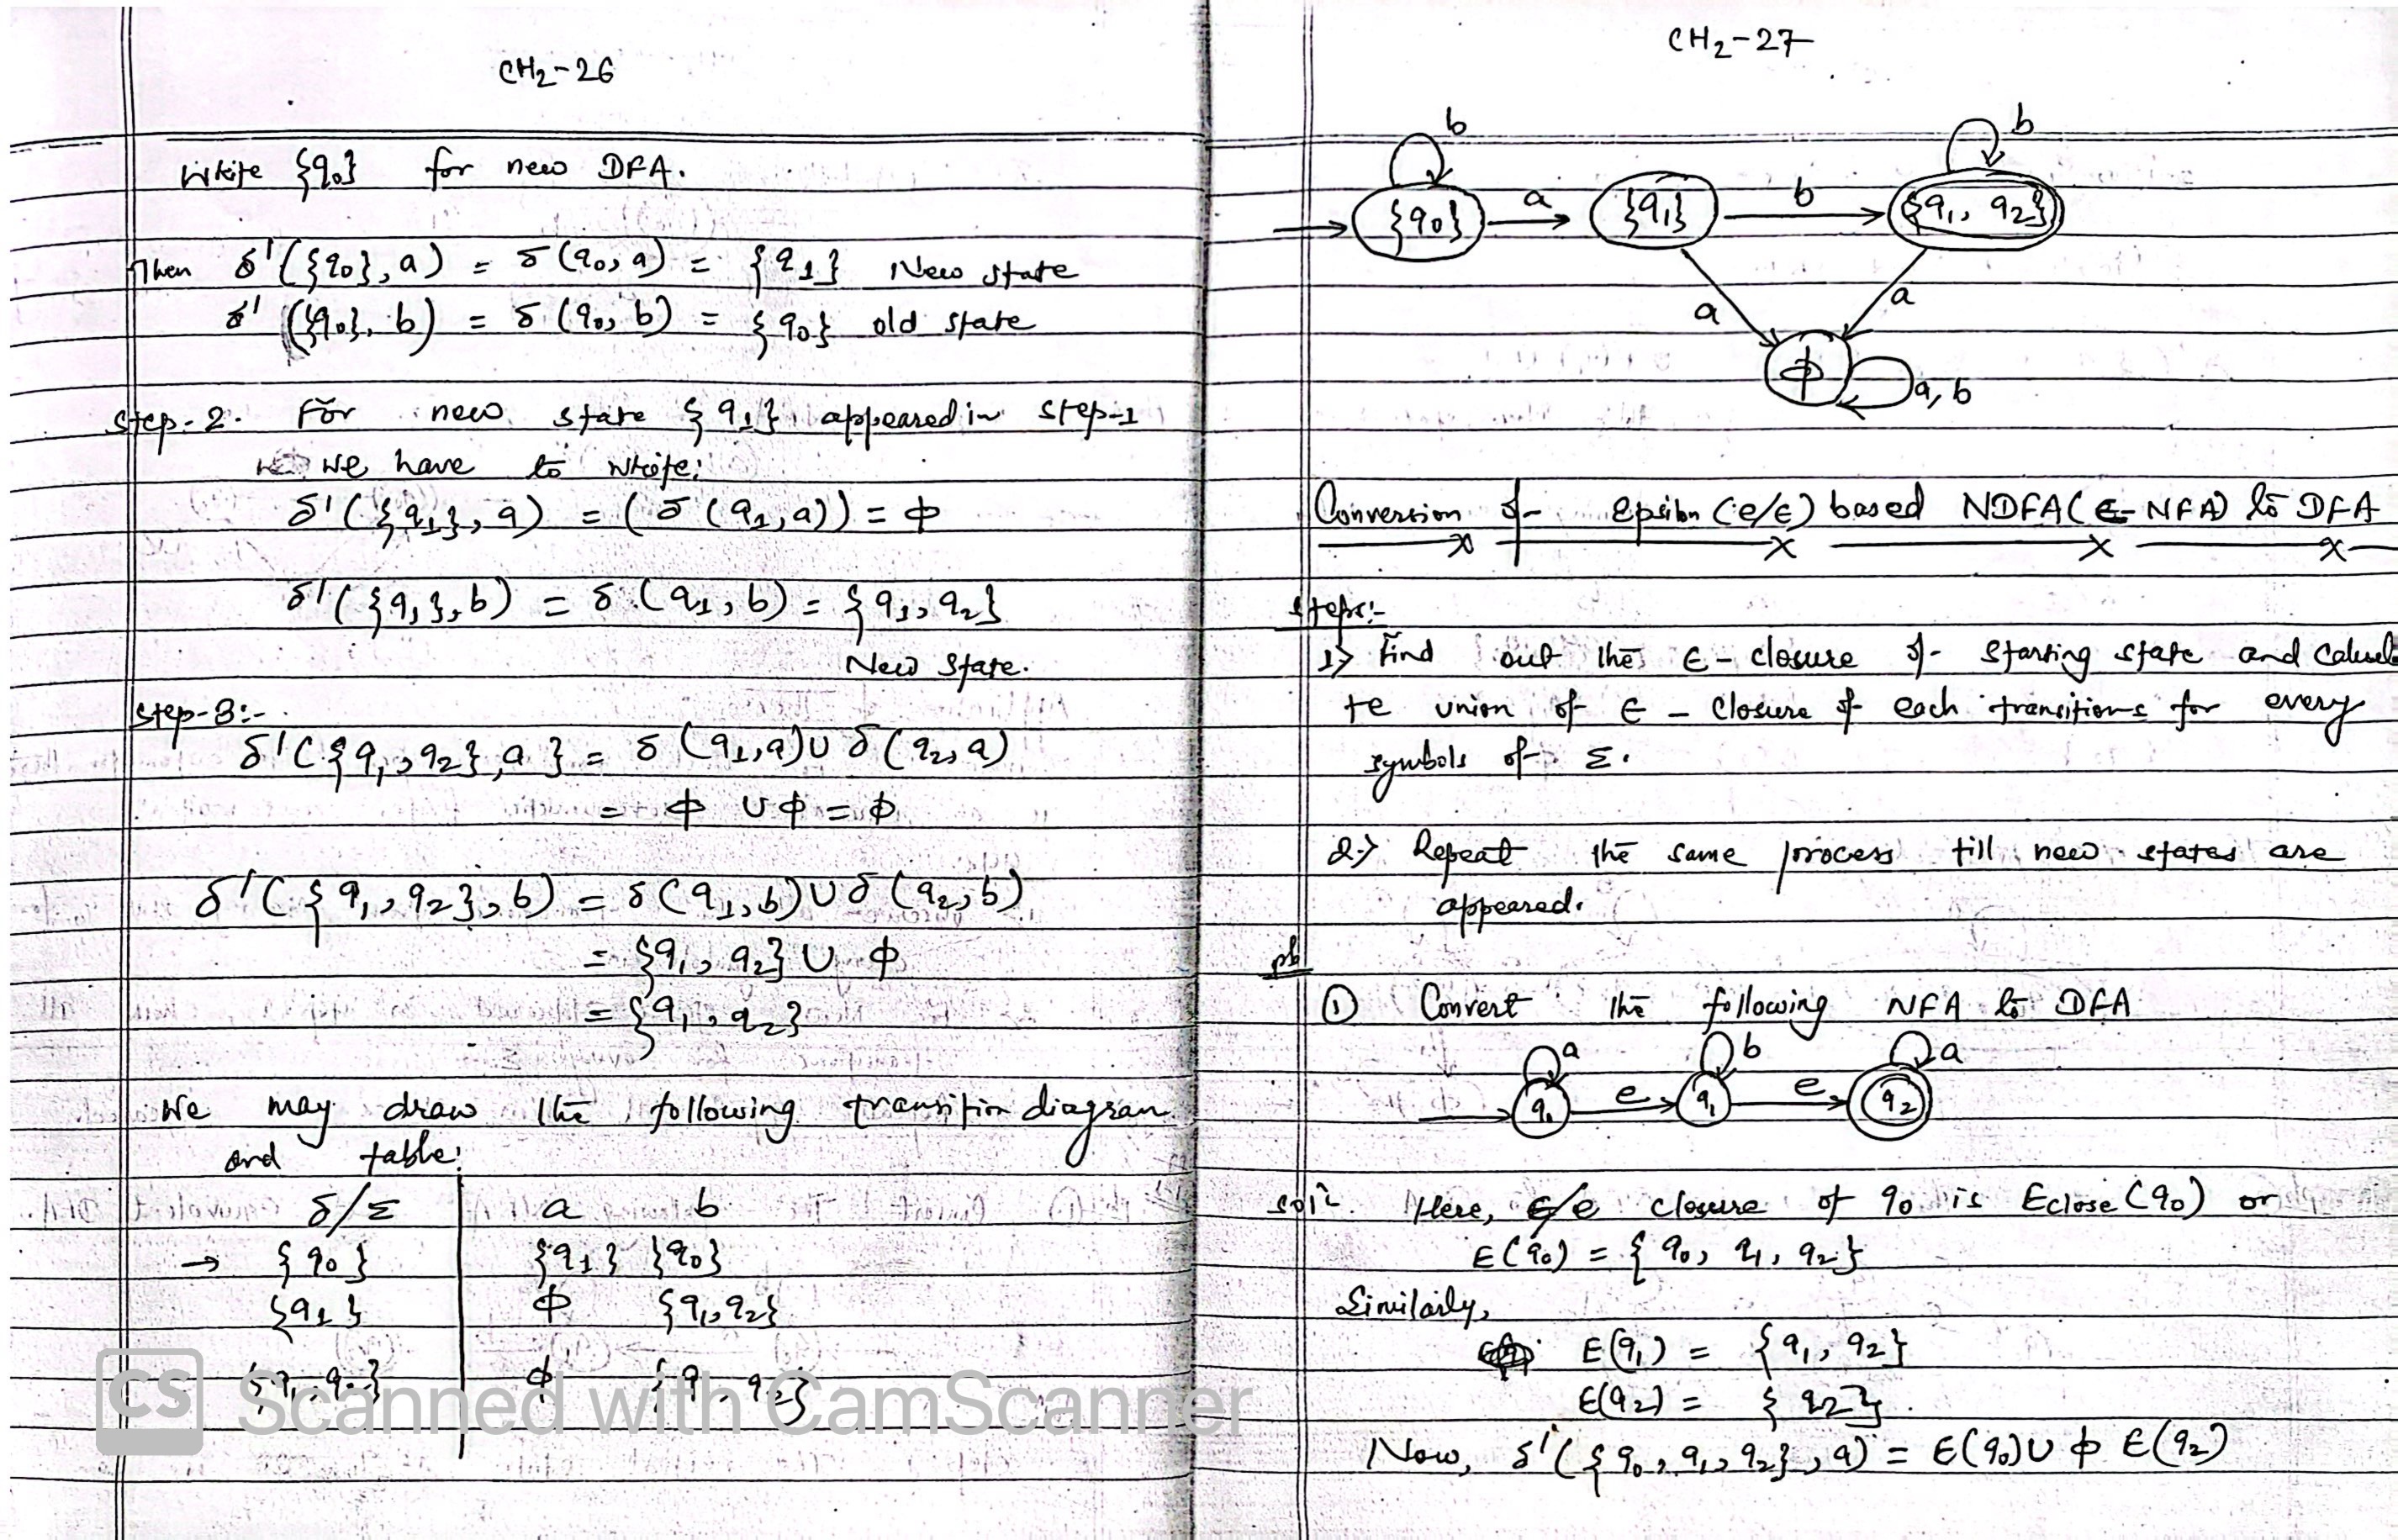 CH2-26
Write {q0} for new DFA.
Then δ'({q0}, a) = δ(q0, a) = {q1} New state
δ'({q0}, b) = δ(q0, b) = {q0} old state
Step-2. For new state {q1} appeared in step-1
we have to write:
δ'({q1}, a) = (δ(q1, a)) = ϕ
δ'({q1}, b) = δ(q1, b) = {q1, q2}
New State.
Step-3:-
δ'({q1, q2}, a} = δ(q1, a) ∪ δ(q2, a)
= ϕ ∪ ϕ = ϕ
δ'({q1, q2}, b) = δ(q1, b) ∪ δ(q2, b)
= {q1, q2} ∪ ϕ
= {q1, q2}
We may draw the following transition diagram
and table:
δ/Σ a b
→ {q0} {q1} {q0}
{q1} ϕ {q1, q2}
{q1, q2} ϕ {q1, q2}
CS Scanned with CamScanner
CH2-27
b b
{q0} a {q1} b {q1, q2}
a a
ϕ a, b
Conversion of Epsilon (e/ϵ) based NDFA(ϵ-NFA) to DFA
Steps:-
1> Find out the ϵ-closure of starting state and Calcula
te union of ϵ-closure of each transitions for every
symbols of Σ.
2> Repeat the same process till new states are
appeared.
pb
① Convert the following NFA to DFA
a b a
q0 e q1 e q2
Solⁿ. Here, ϵ/e closure of q0 is Eclose(q0) or
E(q0) = {q0, q1, q2}
Similarly,
E(q1) = {q1, q2}
E(q2) = {q2}
Now, δ'({q0, q1, q2}, a) = E(q0) ∪ ϕ E(q2)